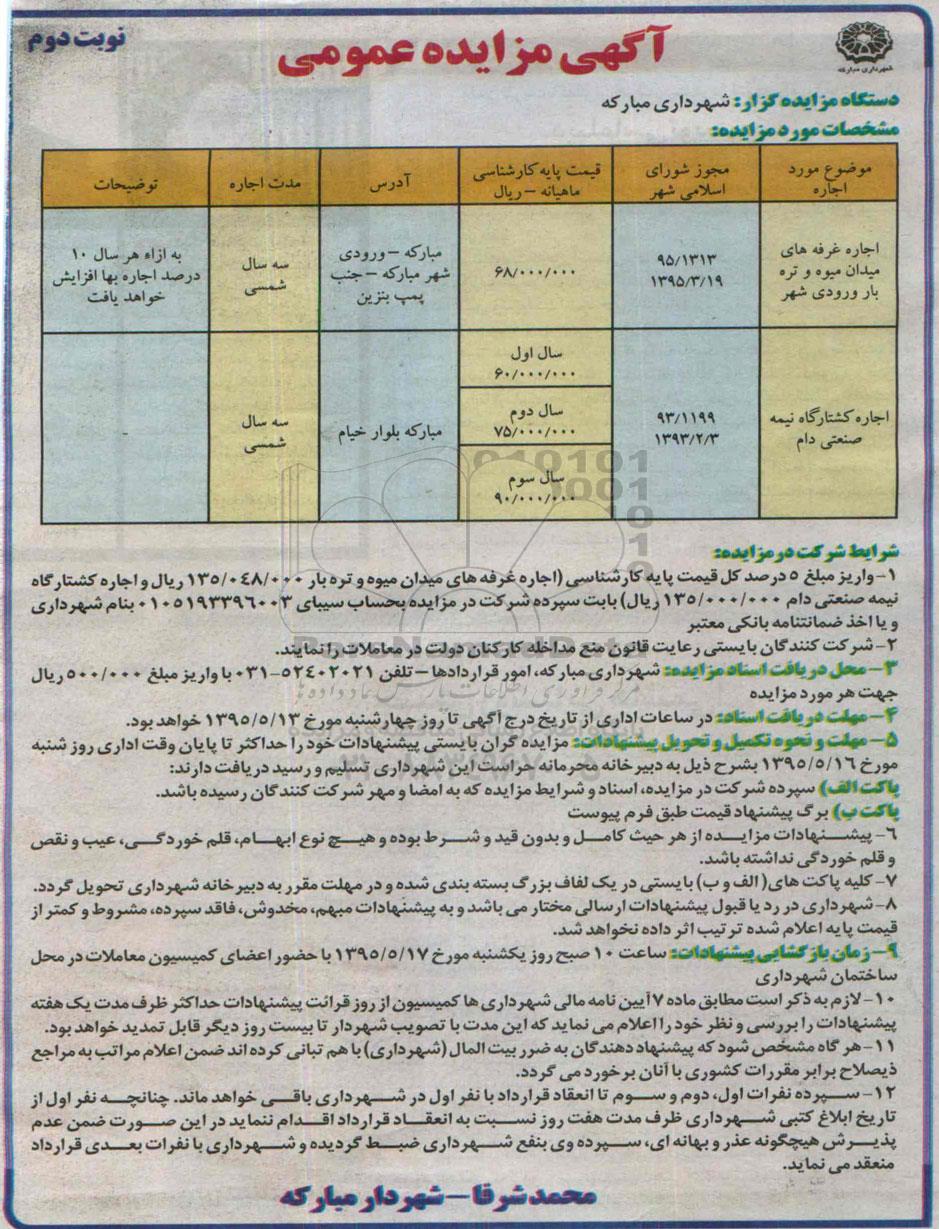 نوبت دوم
آگهی مزایده عمومی
شهرداری مبارکه
دستگاه مزایده گزار: شهرداری مبارکه
مشخصات مورد مزایده:
موضوع مورد اجاره
مجوز شورای اسلامی شهر
قیمت پایه کارشناسی ماهیانه – ریال
آدرس
مدت اجاره
توضیحات
اجاره غرفه های
میدان میوه و تره
بار ورودی شهر
۹۵/۱۳۱۳
۱۳۹۵/۳/۱۹
۶۸/۰۰۰/۰۰۰
مبارکه – ورودی
شهر مبارکه – جنب
پمپ بنزین
سه سال
شمسی
به ازاء هر سال ۱۰
درصد اجاره بها افزایش
خواهد یافت
اجاره کشتارگاه نیمه
صنعتی دام
۹۳/۱۱۹۹
۱۳۹۳/۲/۳
سال اول
۶۰/۰۰۰/۰۰۰
سال دوم
۷۵/۰۰۰/۰۰۰
سال سوم
۹۰/۰۰۰/۰۰۰
مبارکه بلوار خیام
سه سال
شمسی
-
شرایط شرکت در مزایده:
۱- واریز مبلغ ۵ درصد کل قیمت پایه کارشناسی (اجاره غرفه های میدان میوه و تره بار ۱۳۵/۰۴۸/۰۰۰ ریال و اجاره کشتارگاه
نیمه صنعتی دام ۱۳۵/۰۰۰/۰۰۰ ریال) بابت سپرده شرکت در مزایده بحساب سیبای ۰۱۰۵۱۹۳۳۹۶۰۰۳ بنام شهرداری
و یا اخذ ضمانتنامه بانکی معتبر
۲- شرکت کنندگان بایستی رعایت قانون منع مداخله کارکنان دولت در معاملات را نمایند.
۳- محل دریافت اسناد مزایده: شهرداری مبارکه، امور قراردادها – تلفن ۵۲۴۰۲۰۲۱-۰۳۱ با واریز مبلغ ۵۰۰/۰۰۰ ریال
جهت هر مورد مزایده
۴- مهلت دریافت اسناد: در ساعات اداری از تاریخ درج آگهی تا روز چهارشنبه مورخ ۱۳۹۵/۵/۱۳ خواهد بود.
۵- مهلت و نحوه تکمیل و تحویل پیشنهادات: مزایده گران بایستی پیشنهادات خود را حداکثر تا پایان وقت اداری روز شنبه
مورخ ۱۳۹۵/۵/۱۶ بشرح ذیل به دبیرخانه محرمانه حراست این شهرداری تسلیم و رسید دریافت دارند:
پاکت الف) سپرده شرکت در مزایده، اسناد و شرایط مزایده که به امضا و مهر شرکت کنندگان رسیده باشد.
پاکت ب) برگ پیشنهاد قیمت طبق فرم پیوست
۶- پیشنهادات مزایده از هر حیث کامل و بدون قید و شرط بوده و هیچ نوع ابهام، قلم خوردگی، عیب و نقص
و قلم خوردگی نداشته باشد.
۷- کلیه پاکت های( الف و ب) بایستی در یک لفاف بزرگ بسته بندی شده و در مهلت مقرر به دبیرخانه شهرداری تحویل گردد.
۸- شهرداری در رد یا قبول پیشنهادات ارسالی مختار می باشد و به پیشنهادات مبهم، مخدوش، فاقد سپرده، مشروط و کمتر از
قیمت پایه اعلام شده ترتیب اثر داده نخواهد شد.
۹- زمان بازگشایی پیشنهادات: ساعت ۱۰ صبح روز یکشنبه مورخ ۱۳۹۵/۵/۱۷ با حضور اعضای کمیسیون معاملات در محل
ساختمان شهرداری
۱۰- لازم به ذکر است مطابق ماده ۷ آیین نامه مالی شهرداری ها کمیسیون از روز قرائت پیشنهادات حداکثر ظرف مدت یک هفته
پیشنهادات را بررسی و نظر خود را اعلام می نماید که این مدت با تصویب شهردار تا بیست روز دیگر قابل تمدید خواهد بود.
۱۱- هر گاه مشخص شود که پیشنهاد دهندگان به ضرر بیت المال (شهرداری) با هم تبانی کرده اند ضمن اعلام مراتب به مراجع
ذیصلاح برابر مقررات کشوری با آنان برخورد می گردد.
۱۲- سپرده نفرات اول، دوم و سوم تا انعقاد قرارداد با نفر اول در شهرداری باقی خواهد ماند. چنانچه نفر اول از
تاریخ ابلاغ کتبی شهرداری ظرف مدت هفت روز نسبت به انعقاد قرارداد اقدام ننماید در این صورت ضمن عدم
پذیرش هیچگونه عذر و بهانه ای، سپرده وی بنفع شهرداری ضبط گردیده و شهرداری با نفرات بعدی قرارداد
منعقد می نماید.
محمد شرفا – شهردار مبارکه